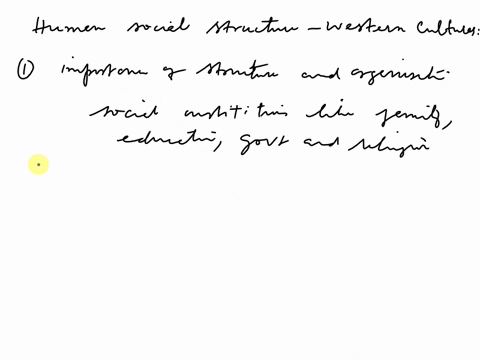 Human social structure – Western Cultures:
① importance of structure and organisation
social institutions like family,
education, govt and religion